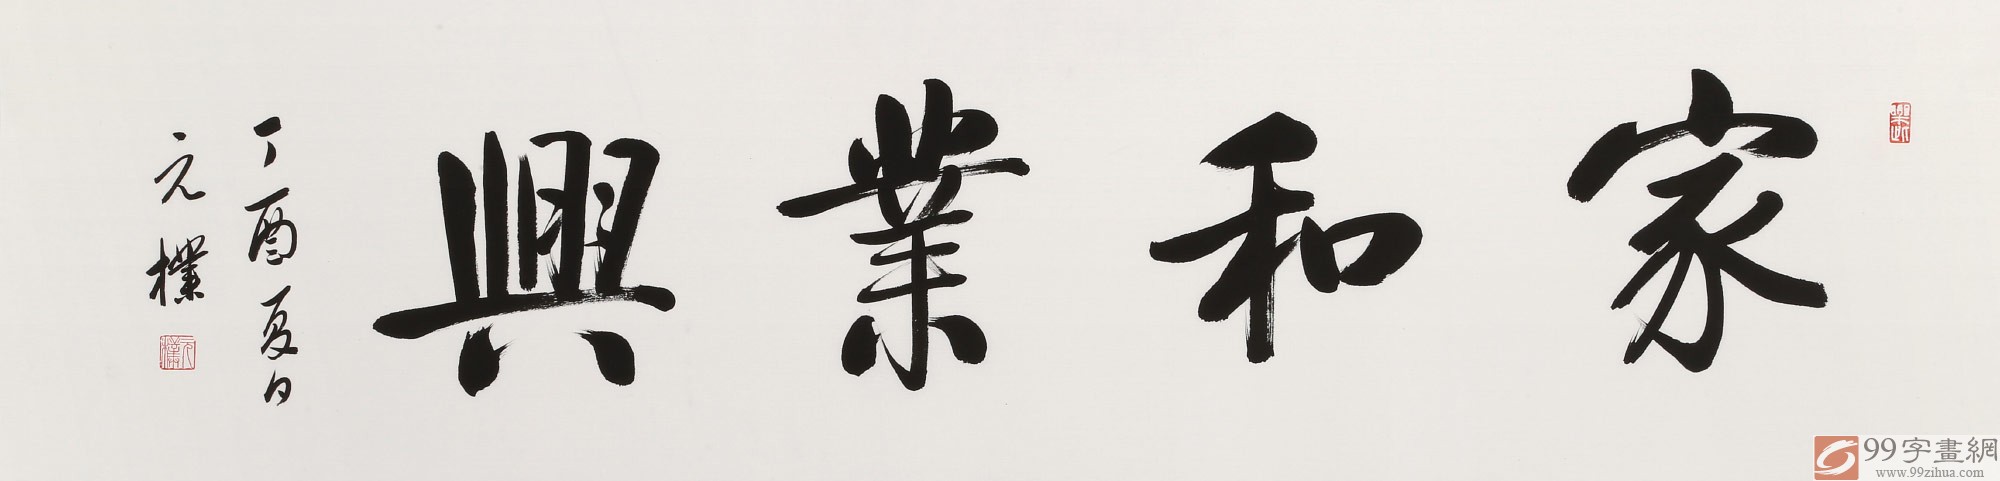 家和業興
丁酉夏日
元樸
元樸
99字畫網
www.99zihua.com